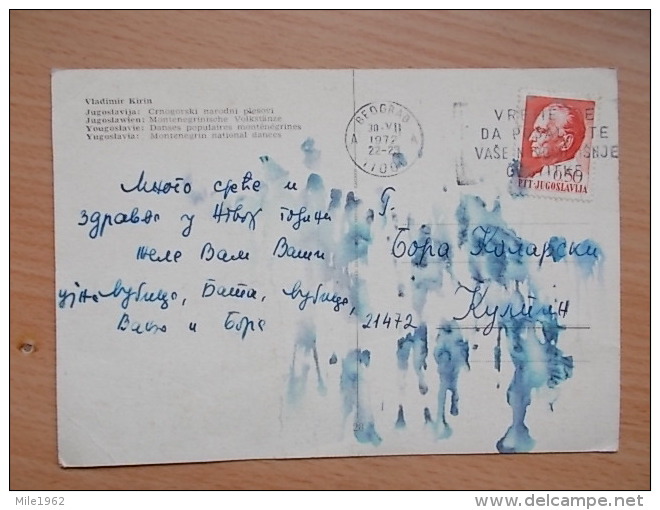 Vladimir Kirin
Jugoslavija: Crnogorski narodni plesovi
Jugoslawien: Montenegrinische Volkstänze
Yougoslavie: Danses populaires monténégrines
Yugoslavia: Montenegrin national dances
BEOGRAD
A
1972
22-23
11000
DA
VAŠE
0,50
PTT-JUGOSLAVIJA
Много среће и
здравља у Новој години
желе Вам Ваши
ујна Љубица, Бата, Љубица,
и Бора
Г.
Бора Коларски
Кулпин
21472
28
Mile1962
delcampe.net